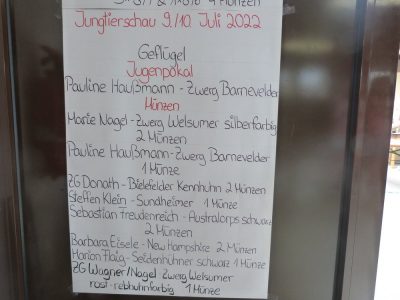 4 Münzen
Jungtierschau 9./10. Juli 2022
Geflügel
Jugenpokal
Pauline Haußmann - Zwerg Barnevelder
Münzen
Marie Nagel - Zwerg Welsumer silberfarbig
2 Münzen
Pauline Haußmann - Zwerg Barnevelder
1 Münze
ZG Donath - Bielefelder Kennhuhn 2 Münzen
Steffen Klein - Sundheimer 1 Münze
Sebastian Freudenreich - Australorps schwarz
2 Münzen
Barbara Eisele - New Hampshire 2 Münzen
Marion Flaig - Seidenhühner schwarz 1 Münze
ZG Wagner/Nagel Zwerg Welsumer
rost-rebhuhnfarbig 1 Münze